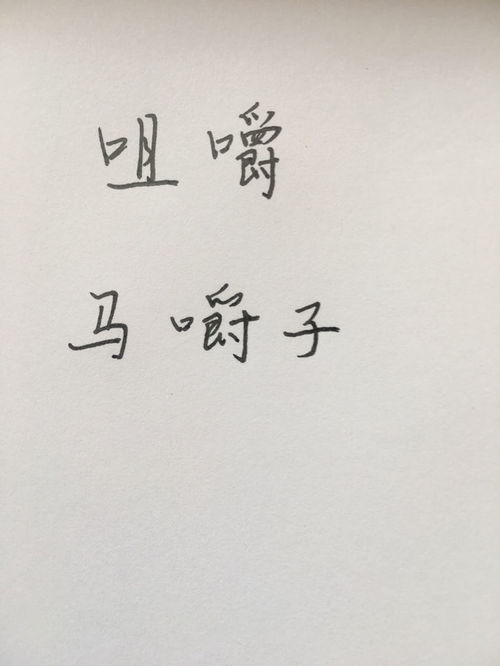 咀嚼
马嚼子